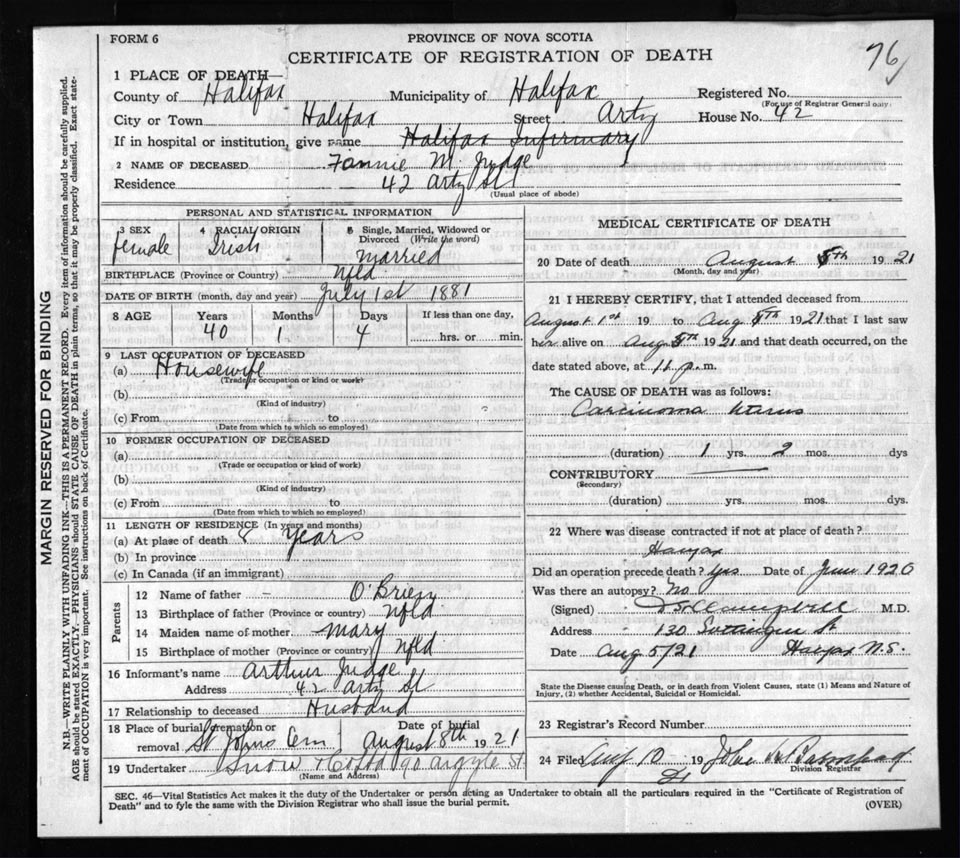 FORM 6
PROVINCE OF NOVA SCOTIA
CERTIFICATE OF REGISTRATION OF DEATH
76
1 PLACE OF DEATH—
County of Halifax Municipality of Halifax Registered No.
(For use of Registrar General only)
City or Town Halifax Street Artz House No. 42
If in hospital or institution, give name Halifax Infirmary
2 NAME OF DECEASED Fannie M. Judge
Residence 42 Artz St
(Usual place of abode)
MARGIN RESERVED FOR BINDING
N.B.—WRITE PLAINLY WITH UNFADING INK—THIS IS A PERMANENT RECORD. Every item of information should be carefully supplied.
AGE should be stated EXACTLY. PHYSICIANS should STATE CAUSE OF DEATH in plain terms, so that it may be properly classified. Exact state-
ment of OCCUPATION is very important. See instructions on back of Certificate.
PERSONAL AND STATISTICAL INFORMATION
3 SEX 4 RACIAL ORIGIN 5 Single, Married, Widowed or
Divorced (Write the word)
female Irish Married
BIRTHPLACE (Province or Country) Nfld
DATE OF BIRTH (month, day and year) July 1st 1881
8 AGE Years Months Days If less than one day,
40 1 4 hrs. or min.
9 LAST OCCUPATION OF DECEASED
(a) Housewife
(Trade or occupation or kind or work)
(b)
(Kind of industry)
(c) From to
(Date from which to which so employed)
10 FORMER OCCUPATION OF DECEASED
(a)
(Trade or occupation or kind of work)
(b)
(Kind of industry)
(c) From to
(Date from which to which so employed)
11 LENGTH OF RESIDENCE (In years and months)
(a) At place of death 8 years
(b) In province
(c) In Canada (if an immigrant)
Parents
12 Name of father — O'Brien
13 Birthplace of father (Province or country) Nfld
14 Maiden name of mother Mary
15 Birthplace of mother (Province or Country) Nfld
16 Informant's name Arthur Judge
Address 42 Artz St
17 Relationship to deceased Husband
18 Place of burial, cremation or Date of burial
removal St Johns Cem August 8th 1921
19 Undertaker Snow & Co 90 Argyle St
(Name and Address)
MEDICAL CERTIFICATE OF DEATH
20 Date of death August 5th 1921
(Month, day and year)
21 I HEREBY CERTIFY, that I attended deceased from
August 1st 19 to Aug 5th 1921 that I last saw
her alive on Aug 5th 1921 and that death occurred, on the
date stated above, at 11 p. m.
The CAUSE OF DEATH was as follows:
Carcinoma Uterus
(duration) 1 yrs. 2 mos. dys
CONTRIBUTORY
(Secondary)
(duration) yrs. mos. dys.
22 Where was disease contracted if not at place of death?
Halifax
Did an operation precede death? Yes Date of June 1920
Was there an autopsy? No
(Signed) Campbell M.D.
Address 130 Gottingen St
Date Aug 5/21 Halifax N.S.
State the Disease causing Death, or in death from Violent Causes, state (1) Means and Nature
of Injury, (2) whether Accidental, Suicidal or Homicidal.
23 Registrar's Record Number
24 Filed Aug 10 19 21 John
Division Registrar
SEC. 46—Vital Statistics Act makes it the duty of the Undertaker or person acting as Undertaker to obtain all the particulars required in the "Certificate of Registration of
Death" and to fyle the same with the Division Registrar who shall issue the burial permit.
(OVER)